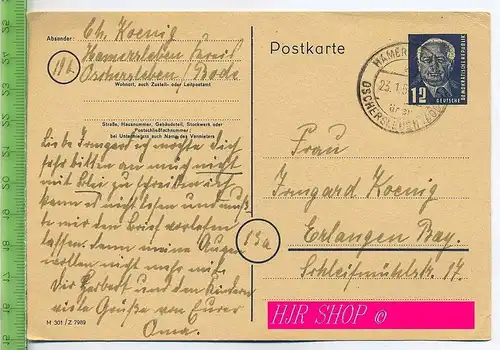 Absender: Ch. Koenig
19b
Hamersleben Kreis
Oschersleben/Bode
Wohnort, auch Zustell- oder Leitpostamt
Straße, Hausnummer, Gebäudeteil, Stockwerk oder
Postschließfachnummer;
bei Untermietern auch Name des Vermieters
Liebe Irmgard ich möchte dich
sehr bitten an mich nicht
mit Blei zu schreiben ich
kann es nicht lesen und mußte
mir den Brief vorlesen
lassen, denn meine Augen
wollen nicht mehr mit.
Dir Herbert und den Kindern
viele Grüße von Eurer
Oma.
M 301 / Z 7989
Postkarte
HAMERSLEBEN
23.1.5
über
OSCHERSLEBEN (BODE)
DEUTSCHE DEMOKRATISCHE REPUBLIK
12
Frau
Irmgard Koenig
13a
Erlangen Bay.
Schleifmühlstr. 17.
HJR SHOP ©
15 16 17 18 19 20 21 22 23 24 25